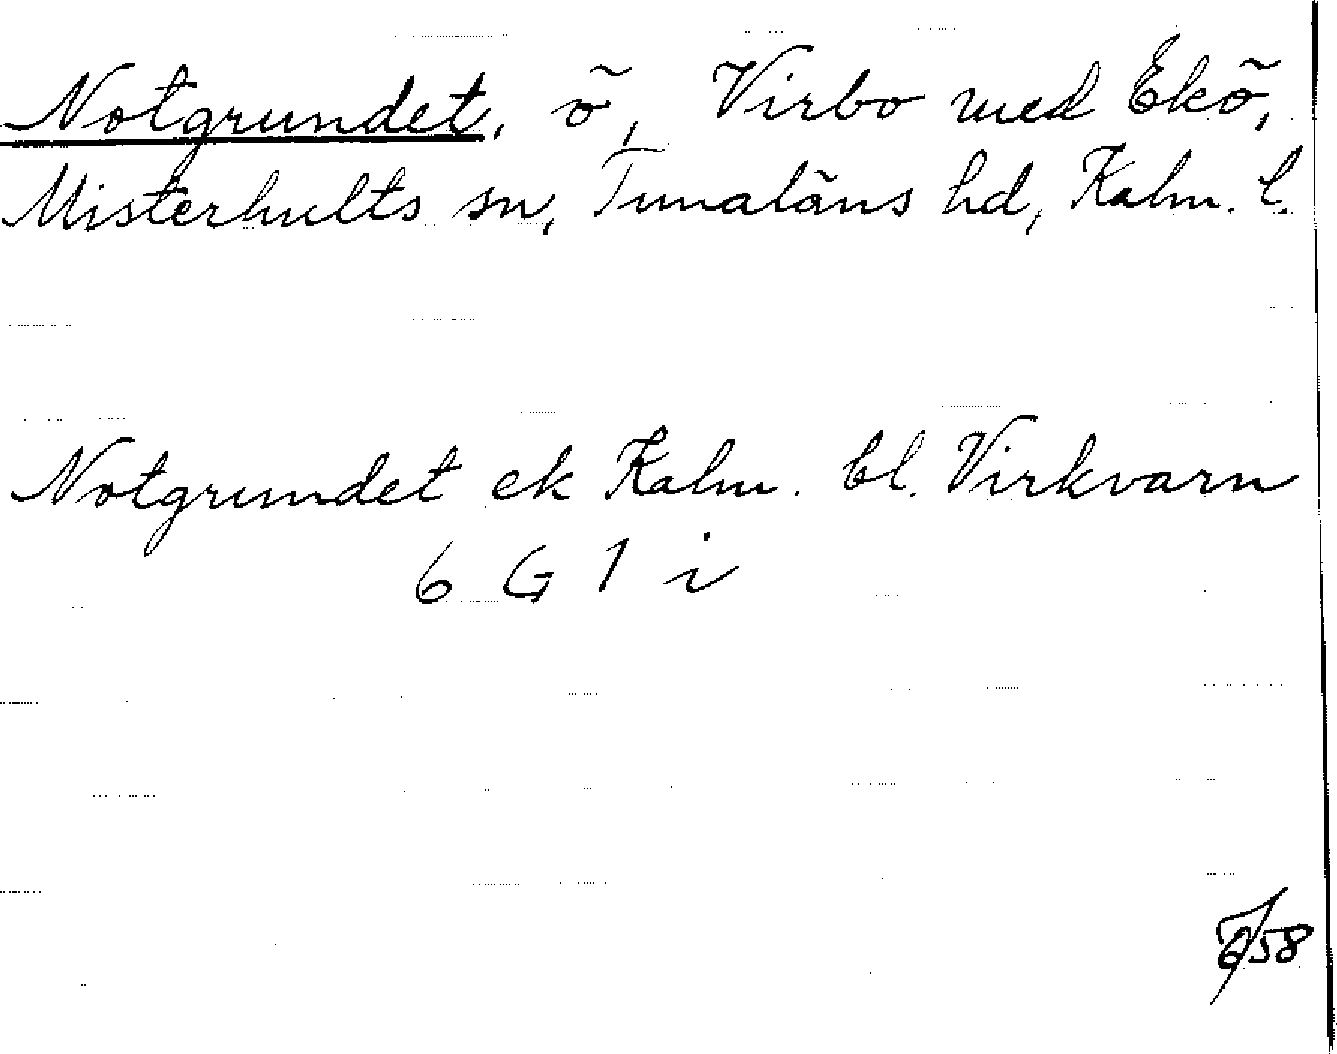 Notgrundet, ö, Virbo med Ekö,
Misterhults sn, Tunaläns hd, Kalm. l.
Notgrundet ek Kalm. bl. Virkvarn
6 G 1 i
58